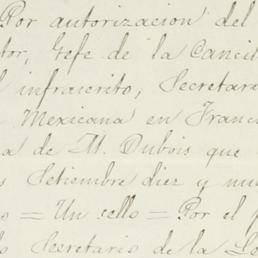 Por autorizacion del
tor, Gefe de la Cancil
l infrascrito, Secretar
Mexicana en Franc
a de M. Dubois que
s Setiembre diez y nu
s = Un sello = Por el p
lo Secretario de la Le